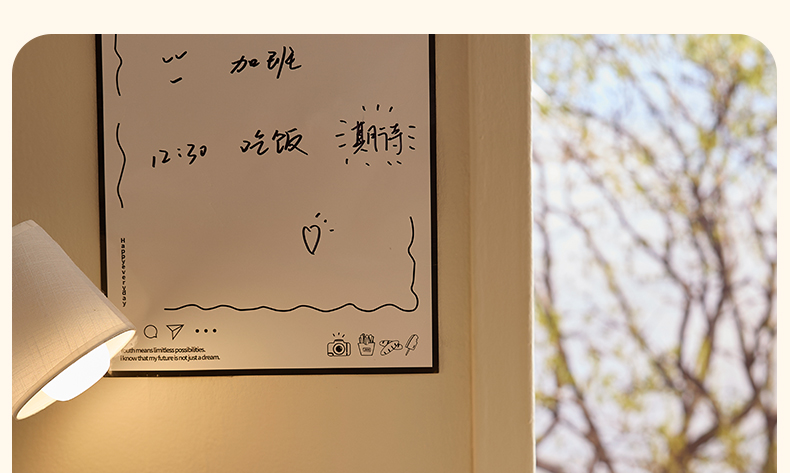 加班
12:30 吃饭 期待
Happyeveryday
Youth means limitless possibilities.
I know that my future is not just a dream.